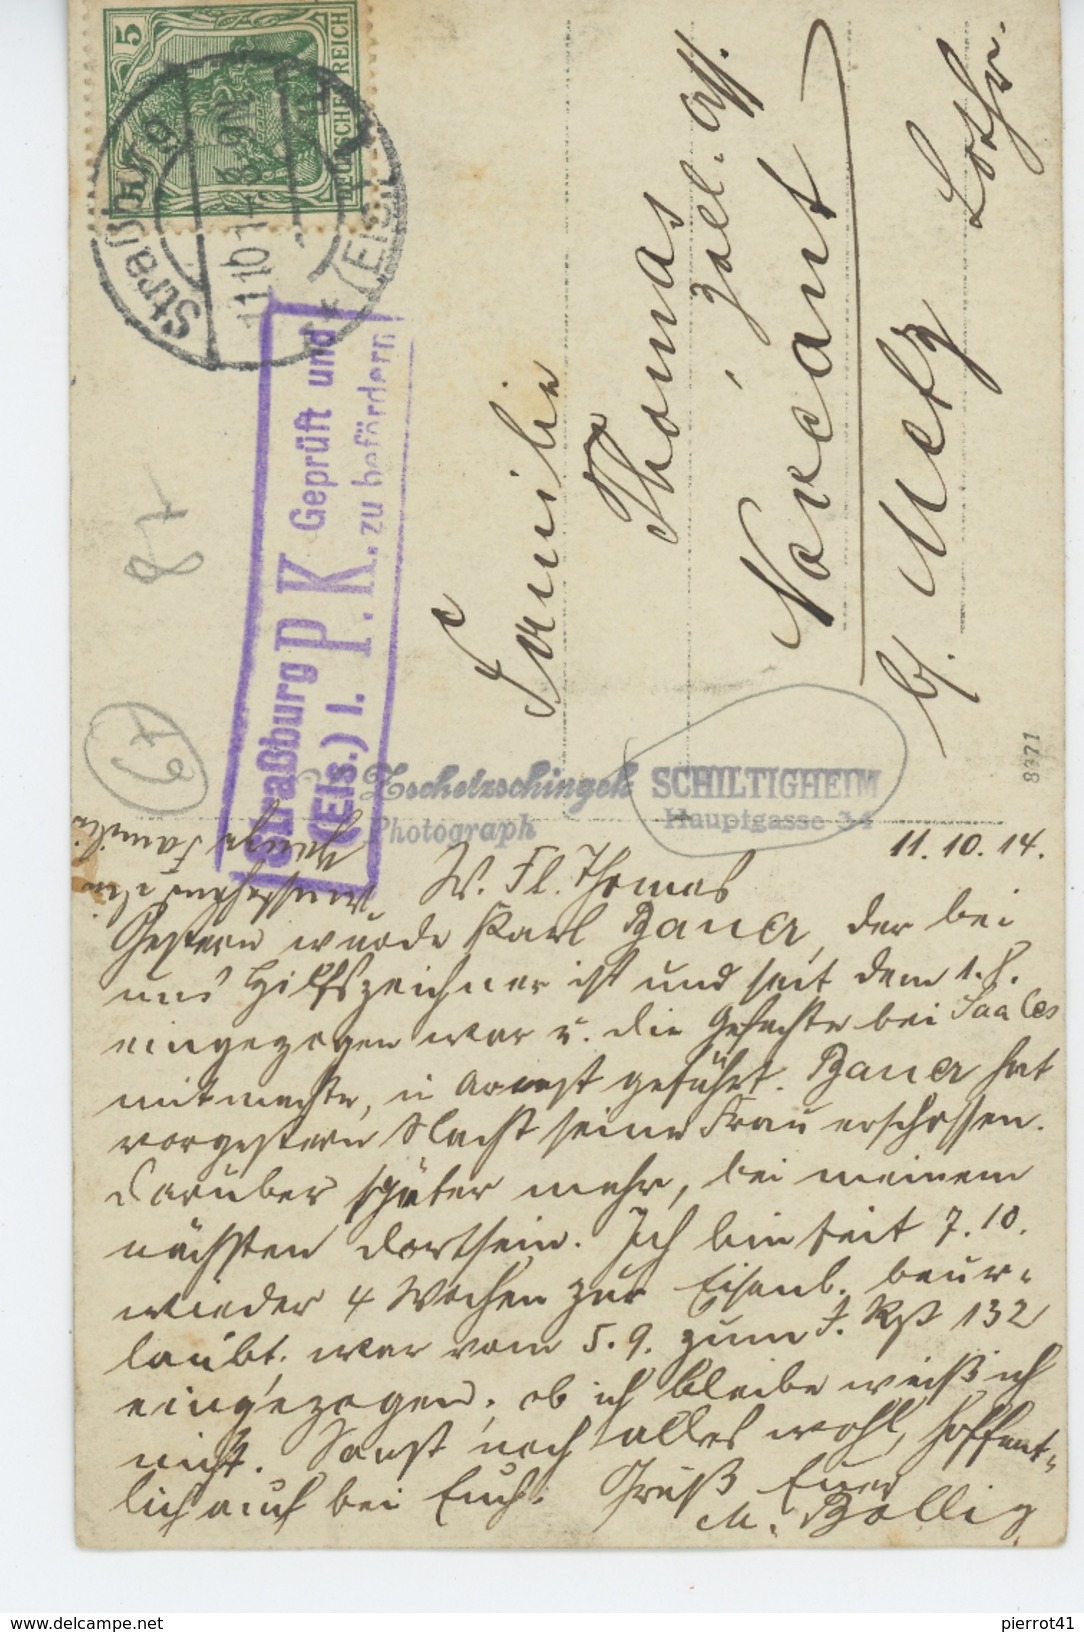 5
DEUTSCHES REICH
Straßb
(Els.)
11.10.14
Straßburg P.K. Geprüft und
(Els.) I. P.K. zu befördern
87
67
Familie
Thomas
Zoll-Ass.
Novéant
b/. Metz
Lothr.
Tschetzschingek
Photograph
SCHILTIGHEIM
Hauptgasse 34
8771
11.10.14.
ganze Familie
W. Fl. Thomas
Gestern wurde Karl Bauer, der bei
uns Hilfszeichner ist und seit dem 1.8.
eingezogen war u. die Gefechte bei Saales
mitmachte, in Arrest geführt. Bauer hat
vorgestern Nacht seine Frau erschossen.
Darüber später mehr, bei meinem
nächsten Dortsein. Ich bin seit 7.10.
wieder 4 Wochen zur Eisenb. beur-
laubt. war vom 5.9. zum J. Rgt 132
eingezogen, ob ich bleibe weiß ich
nicht. Sonst noch alles wohl, hoffent-
lich auch bei Euch. Gruß Euer
M. Bollig
www.delcampe.net
pierrot41